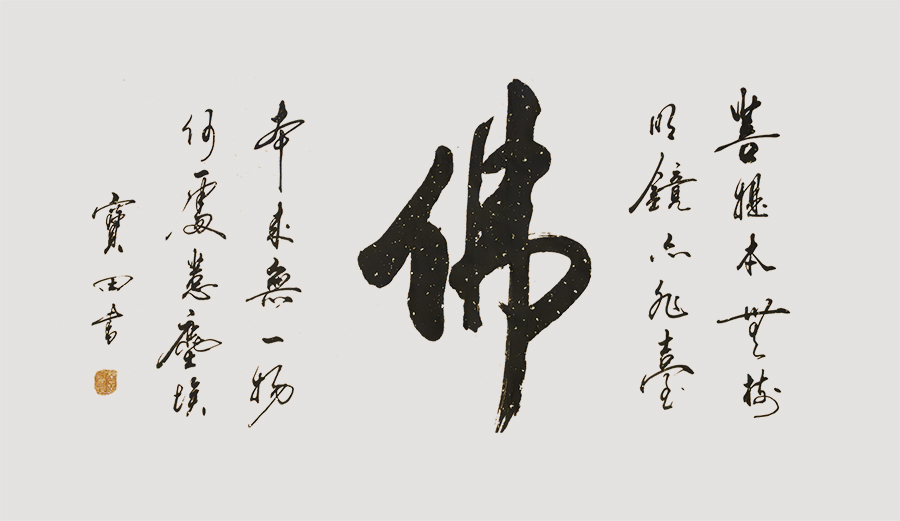 菩提本無樹
明鏡亦非臺
佛
本來無一物
何處惹塵埃
寶田書